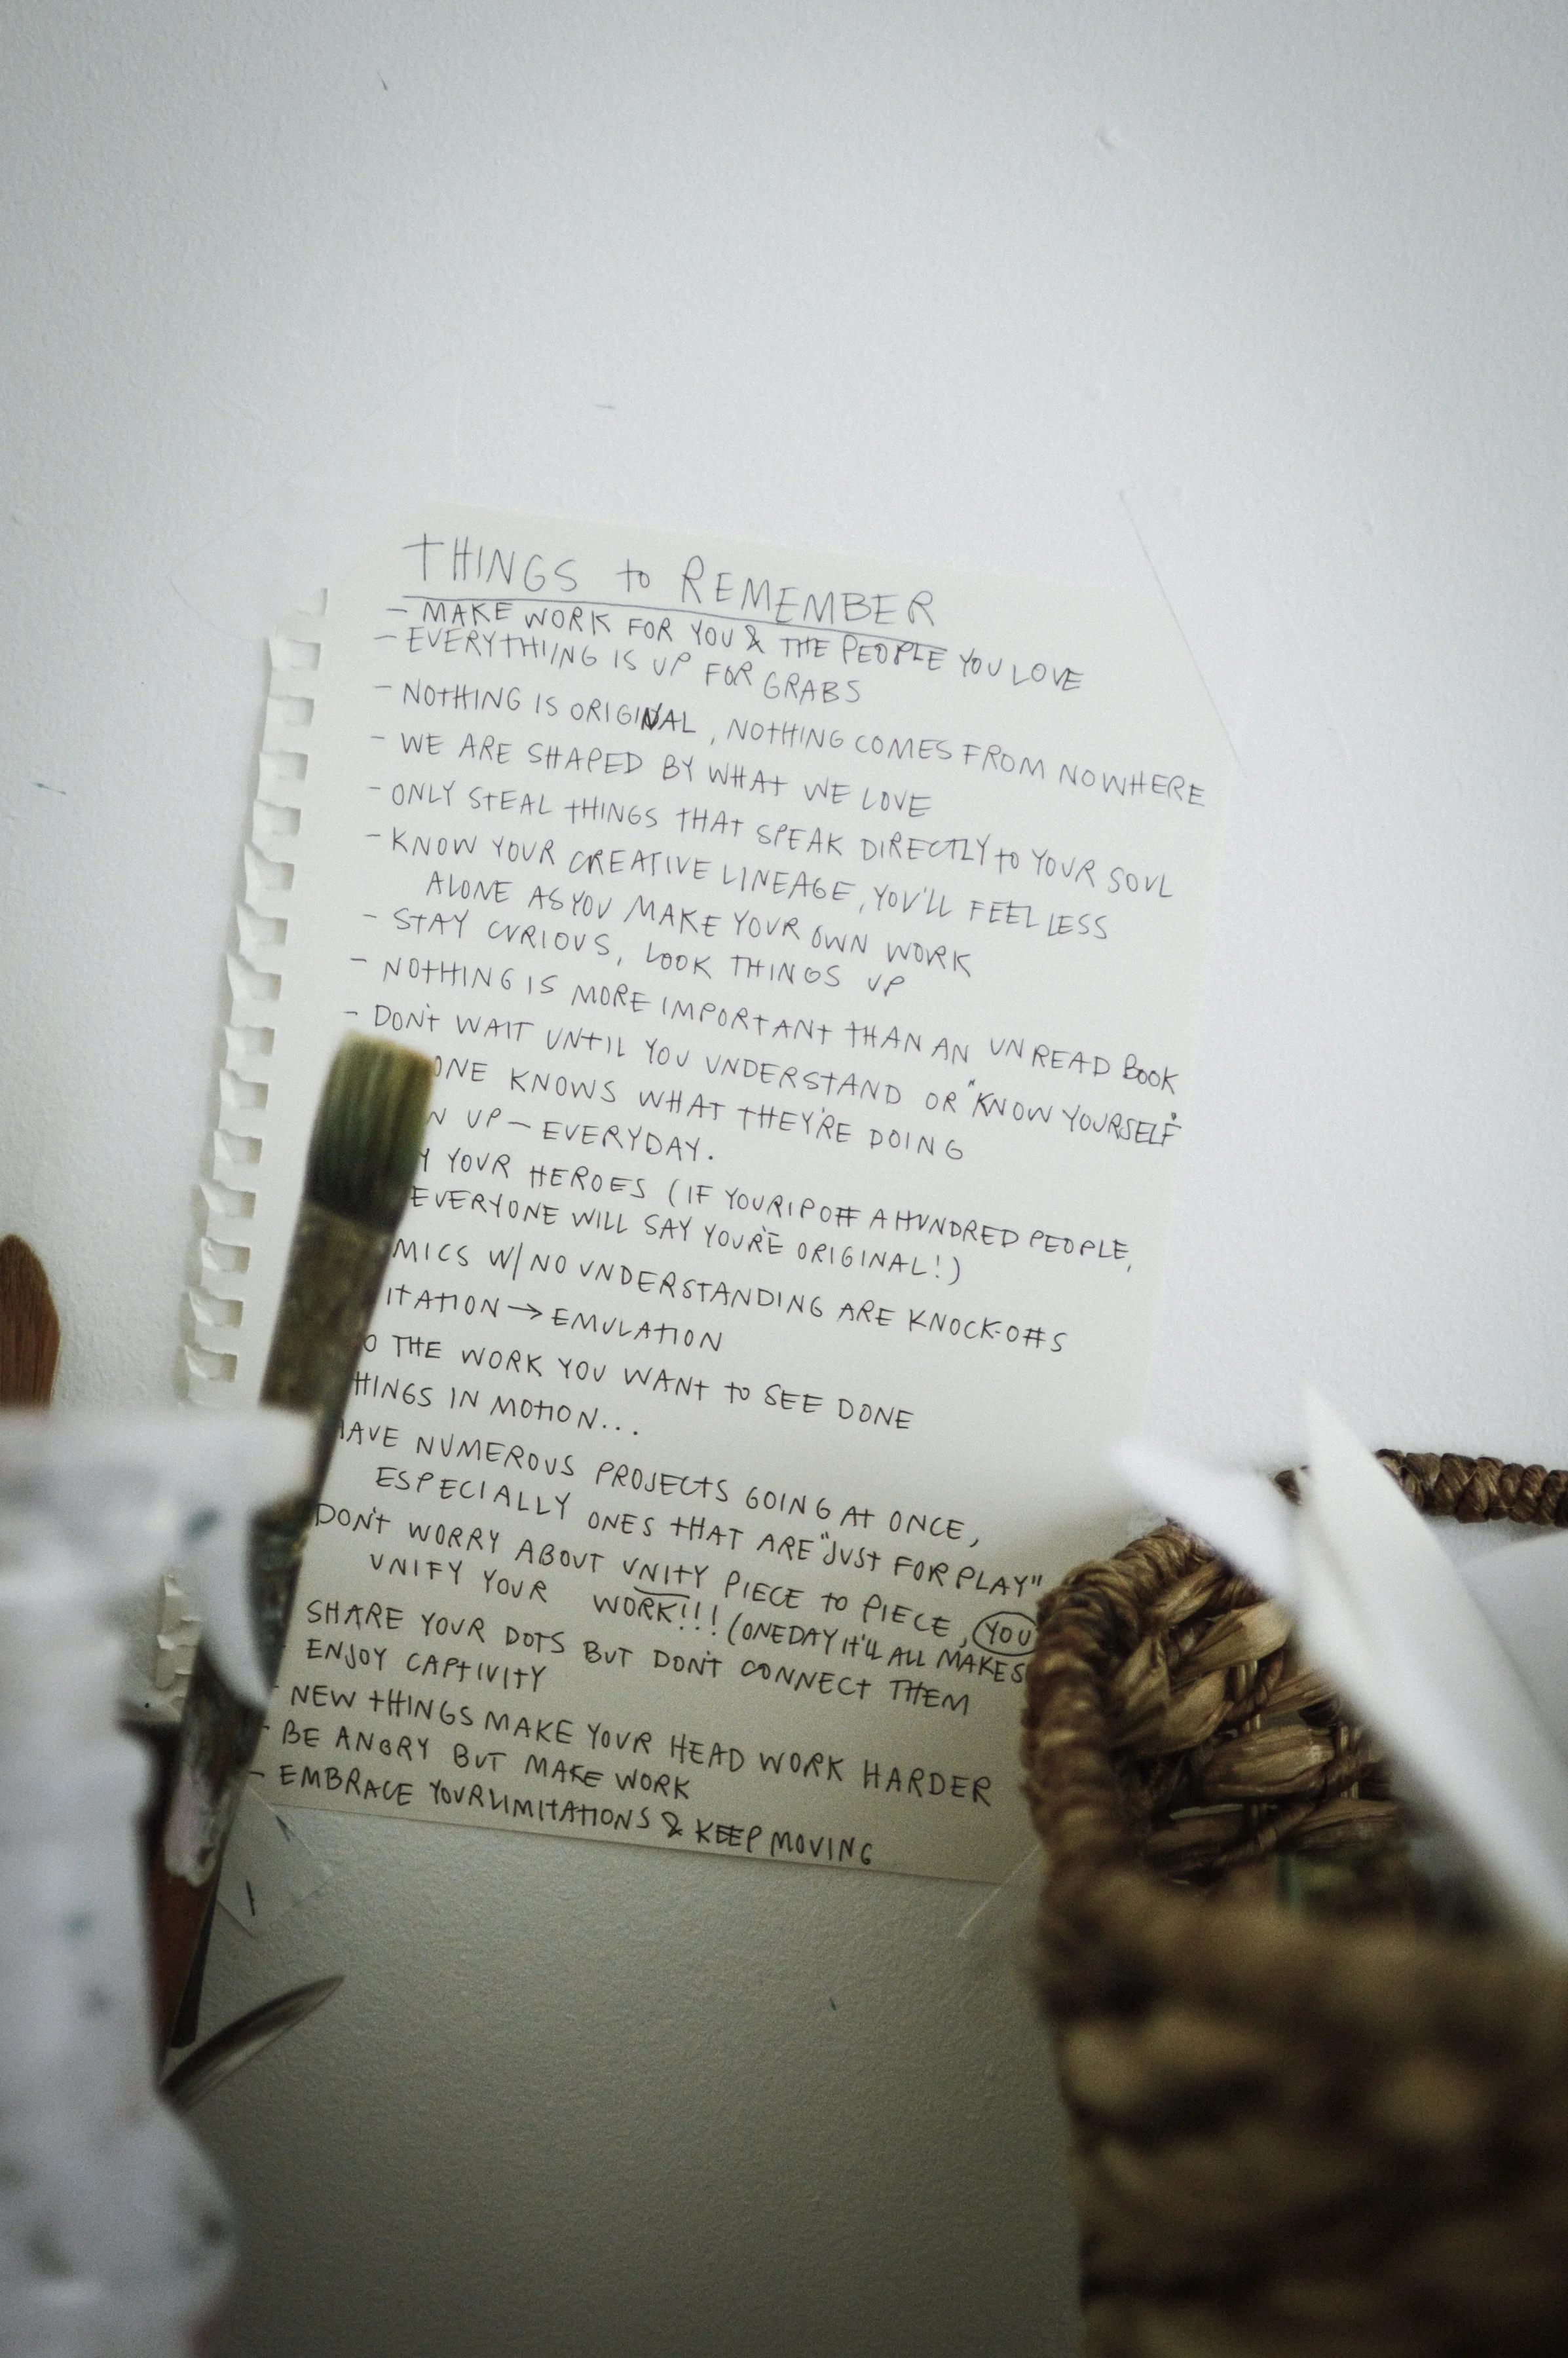 THINGS to REMEMBER
- MAKE WORK FOR YOU & THE PEOPLE YOU LOVE
- EVERYTHIING IS UP FOR GRABS
- NOTHING IS ORIGINAL, NOTHING COMES FROM NOWHERE
- WE ARE SHAPED BY WHAT WE LOVE
- ONLY STEAL THINGS THAT SPEAK DIRECTLY to YOUR SOUL
- KNOW YOUR CREATIVE LINEAGE, YOU'LL FEEL LESS
ALONE AS YOU MAKE YOUR OWN WORK
- STAY CURIOUS, LOOK THINGS UP
- NOTHING IS MORE IMPORTANT THAN AN UNREAD BOOK
- DON'T WAIT UNTIL YOU UNDERSTAND OR "KNOW YOURSELF"
ONE KNOWS WHAT THEY'RE DOING
N UP - EVERYDAY.
Y YOUR HEROES (IF YOU RIP OFF A HUNDRED PEOPLE,
EVERYONE WILL SAY YOU'RE ORIGINAL!)
MICS W/ NO UNDERSTANDING ARE KNOCK-OFFS
ITATION → EMULATION
O THE WORK YOU WANT to SEE DONE
HINGS IN MOTION...
HAVE NUMEROUS PROJECTS GOING AT ONCE,
ESPECIALLY ONES THAT ARE "JUST FOR PLAY"
DON'T WORRY ABOUT UNITY PIECE to PIECE, YOU
UNIFY YOUR WORK!!! (ONE DAY IT'LL ALL MAKES
SHARE YOUR DOTS BUT DON'T CONNECT THEM
- ENJOY CAPTIVITY
- NEW THINGS MAKE YOUR HEAD WORK HARDER
- BE ANGRY BUT MAKE WORK
- EMBRACE YOUR LIMITATIONS & KEEP MOVING